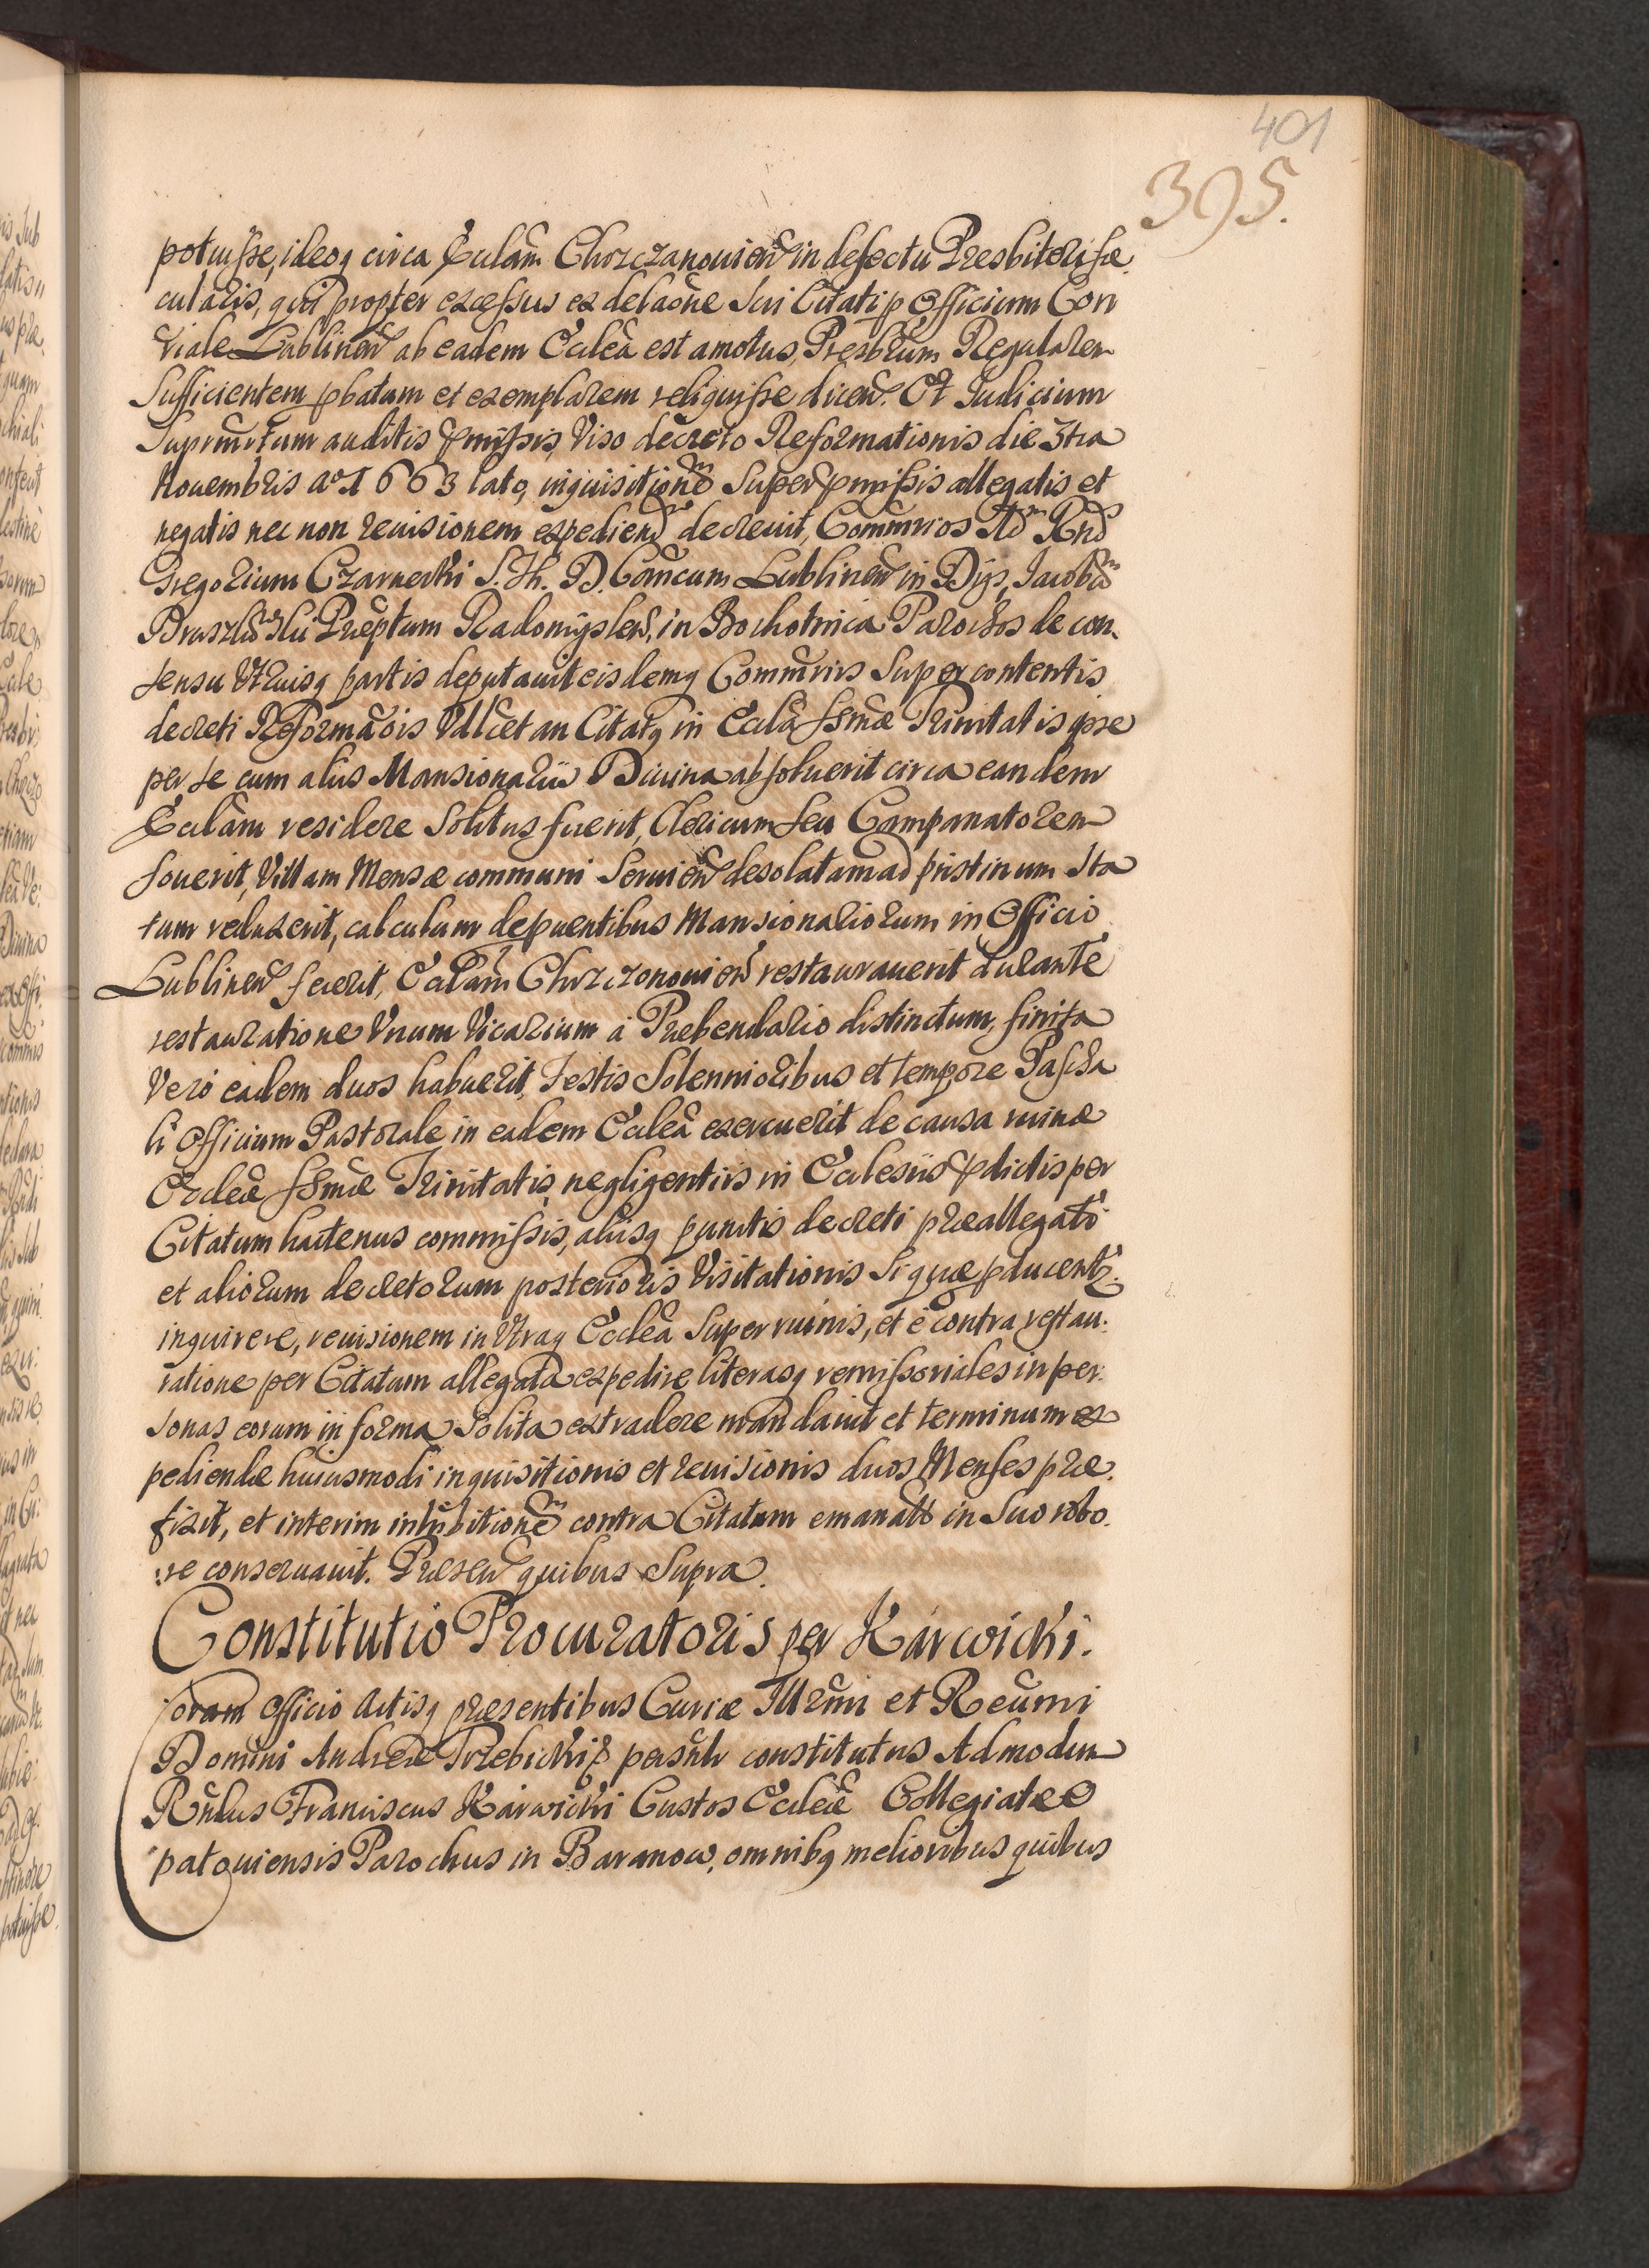 401
395.
potuisse, ideoq circa Ecclam Chrzczanouien in defectu Presbiteri sæ
cularis, qui propter excessus ex delaone sui Citati p Officium Con
riale Lublinen ab eadem Ecclea est amotus, Presbrum Regularem
Sufficientem pbatum et exemplarem reliquisse dicen. Et Judicium
Suprmtum auditis pmissis, Viso decreto Reformationis die 3tia
Nouembris ao 1663 lato, inquisitionem Super pmissis allegatis et
negatis nec non reuisionem expediend decreuit, Commrios Adm Rnd
Gregorium Czarnecki S. Th. D. Cancum Lublinen in Dys, Jacobum
Præptum Radomyslen, in Bochotnica Parochos de con
sensu Vtriusq partis deputauit eisdemq Commriis Super contentis
decreti Reformaois Vdlicet an Citatq in Eccla ssmæ Trinitatis ipse
per se cum aliis Mansionariis Diuina absoluerit circa eandem
Ecclam residere Solitus fuerit, Clericum seu Campanatorem
fouerit, Villam Mensæ communi Seruien desolatam ad pristinum Sta
tum reduxerit, calculum de puentibus Mansionariorum in Officio
Lublinen fecerit, Ecclam Chrzczonouien restaurauerit durante
restauratione Vnum Vicarium a Prebendario distinctum, finita
Vero eadem duos habuerit, Festis Solennioribus et tempore Pascha
li Officium Pastorale in eadem Ecclea exercuerit de causa ruinæ
Eccleæ ssmæ Trinitatis, negligentiis in Eclesiis pdictis per
Citatum hactenus commissis, aliisq punctis decreti præallegati
et aliorum decretorum posterioris Visitationis Si quæ pducentr
inquirere, reuisionem in Vtraq Ecclea Super ruinis, et e contra restau:
ratione per Citatum allegata expedire literasq remissoriales in per:
sonas eorum in forma Solita extradere mandauit et terminum ex
pediendæ huiusmodi inquisitionis et reuisionis duos Menses præ
fixit, et interim inhibitionem contra Citatum emanatam in Suo robo
:re conseruauit. Præsen quibus Supra.
Constitutio Procuratoris per Karwicki.
Coram Officio Actisq præsentibus Curiæ Illrmi et Reumi
Domini Andreæ Trzebicki & persnlr constitutus Admodum
Rndus Franciscus Karwicki Custos Eccleæ Collegiatæ O
patouiensis Parochus in Baranow, omnibq melioribus quibus